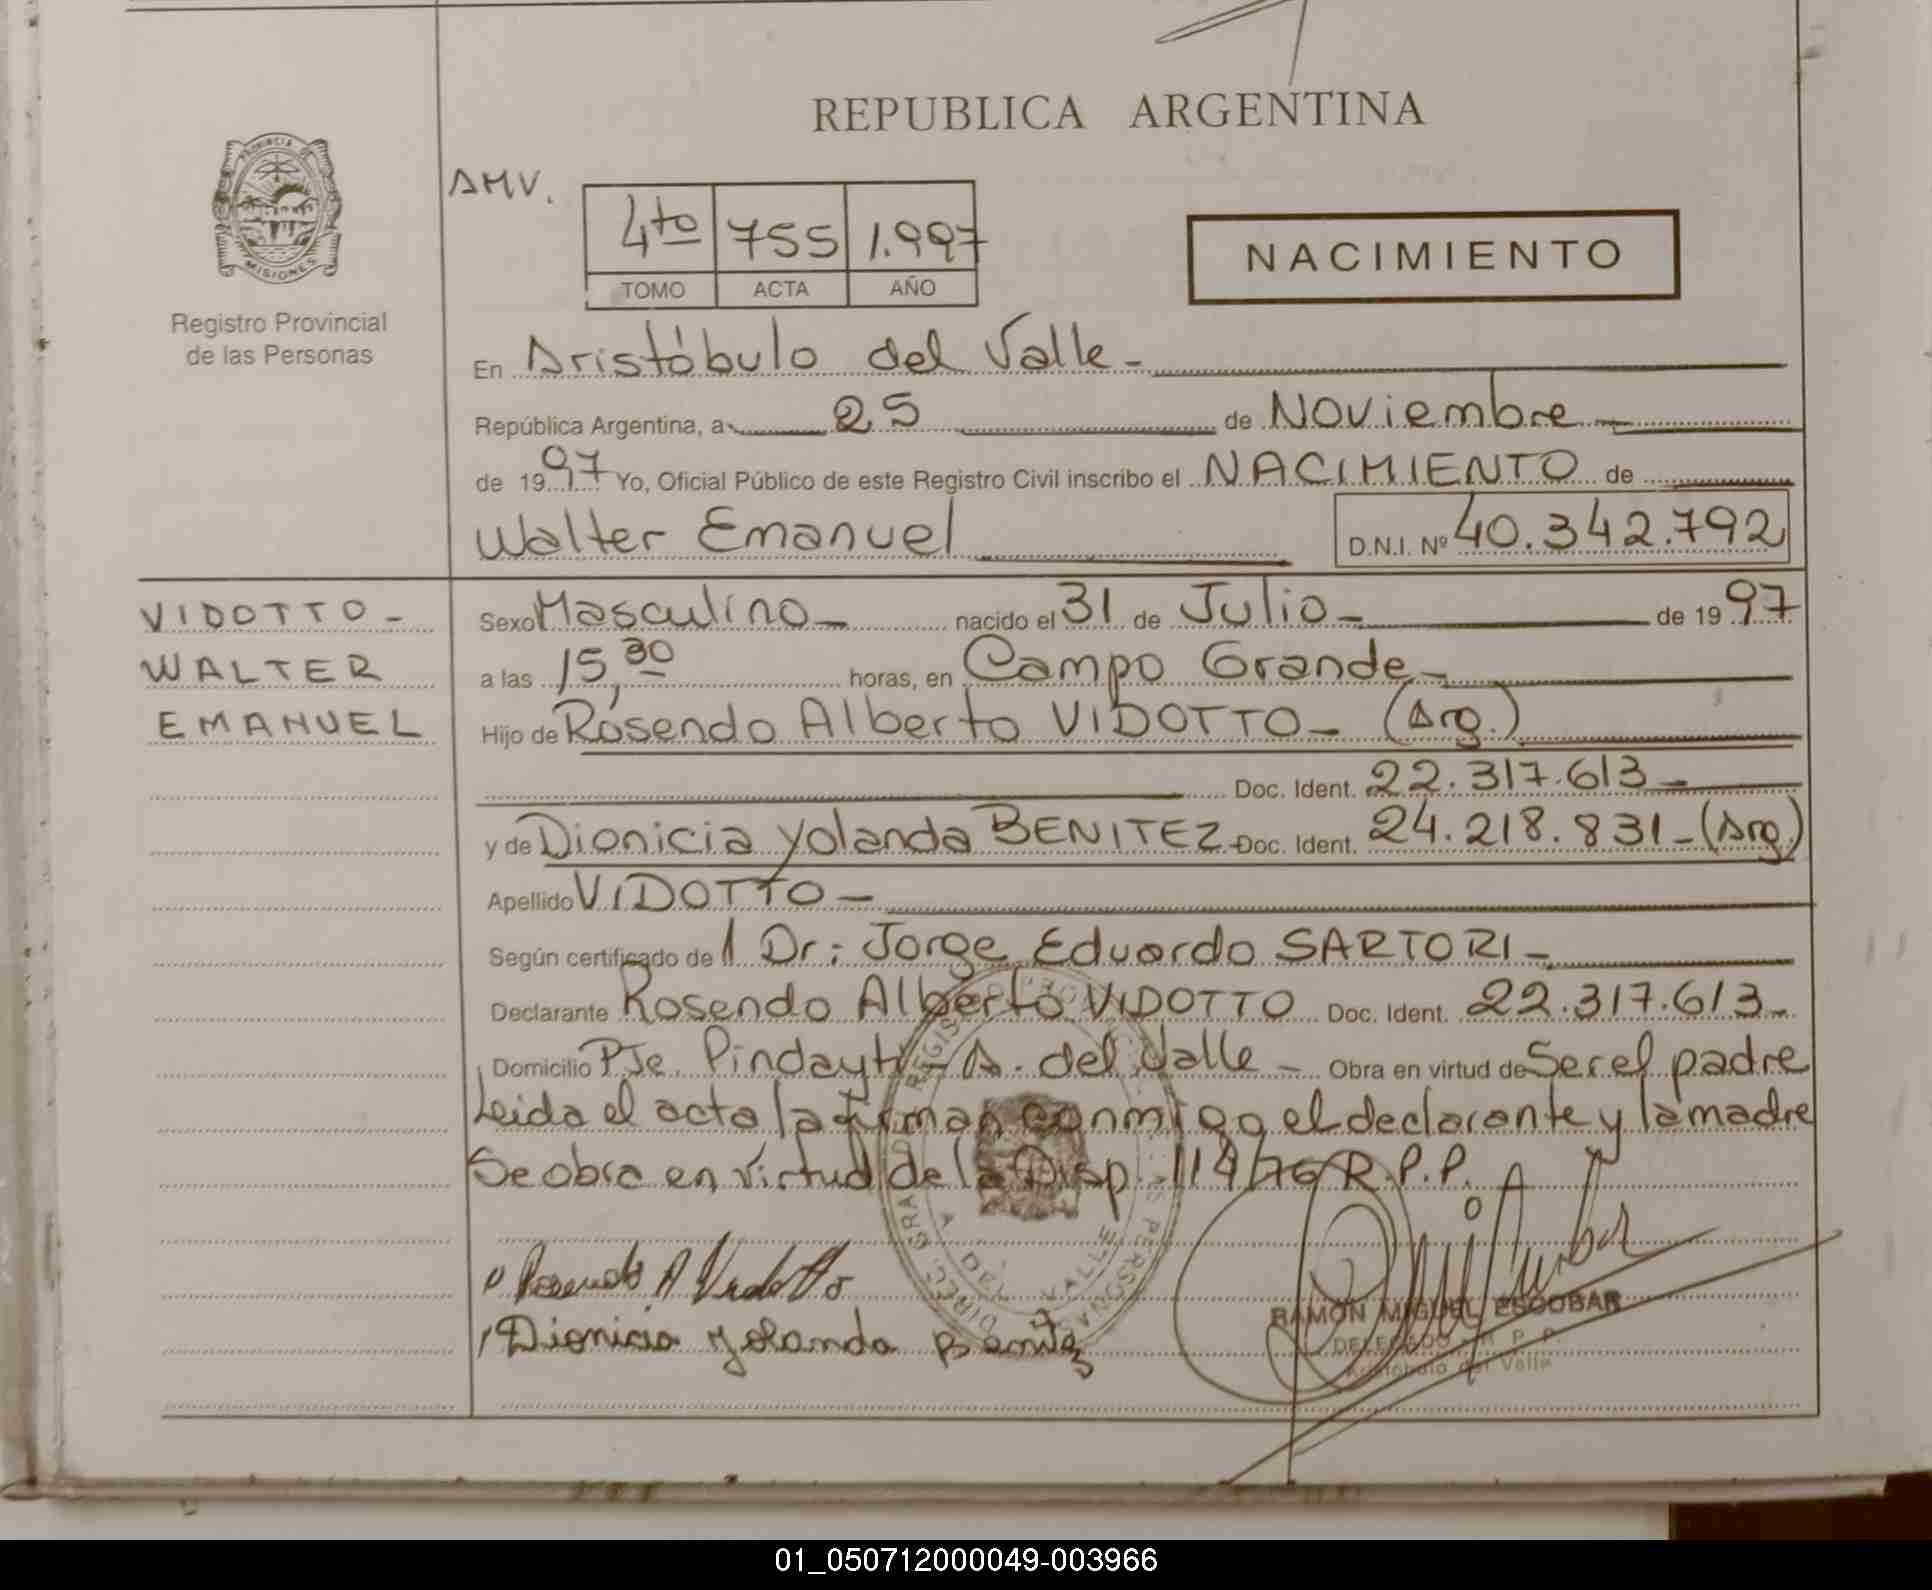 REPUBLICA ARGENTINA
PROVINCIA DE
MISIONES
Registro Provincial
de las Personas
AMV.
4to 755 1.997
TOMO ACTA AÑO
NACIMIENTO
En Aristóbulo del Valle -
República Argentina, a 25 de Noviembre -
de 1997 Yo, Oficial Público de este Registro Civil inscribo el NACIMIENTO de
Walter Emanuel D.N.I. Nº 40.342.792
VIDOTTO -
WALTER
EMANUEL
Sexo Masculino - nacido el 31 de Julio - de 1997
a las 15,30 horas, en Campo Grande -
Hijo de Rosendo Alberto VIDOTTO - (Arg.)
Doc. Ident. 22.317.613 -
y de Dionicia Yolanda BENITEZ - Doc. Ident. 24.218.831 - (Arg.)
Apellido VIDOTTO -
Según certificado de l Dr: Jorge Eduardo SARTORI -
Declarante Rosendo Alberto VIDOTTO Doc. Ident. 22.317.613 -
Domicilio Pje. Pindayti - A. del Valle - Obra en virtud de Ser el padre
Leida el acta la firman conmigo el declarante y la madre
Se obra en virtud de la Disp. 114/76 R.P.P.
Rosendo A Vidotto
Dionicia Yolanda Benitez
RAMON MIGUEL ESCOBAR
DELEGADO R P P
Aristóbulo del Valle
01_050712000049-003966